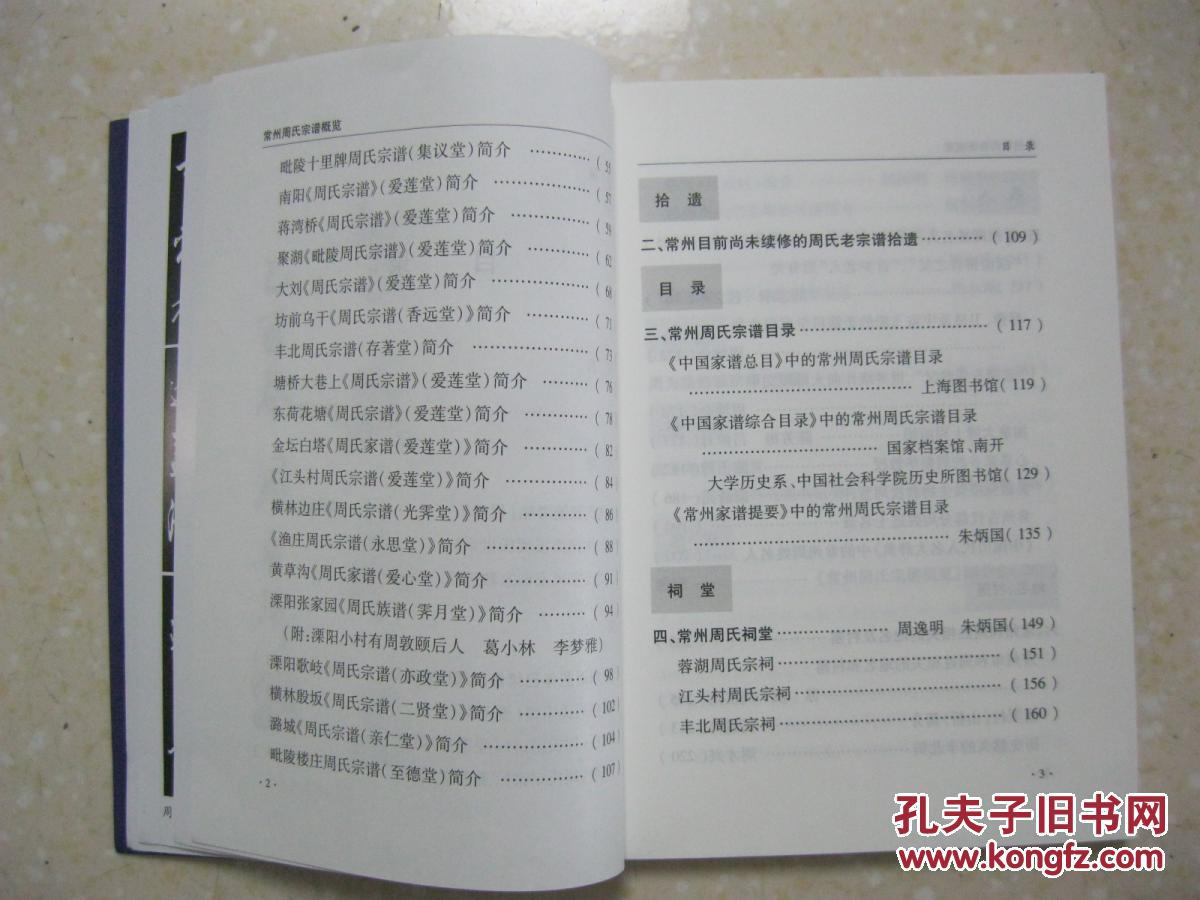 常州周氏宗谱概览
毗陵十里牌周氏宗谱(集议堂)简介 ………… (55
南阳《周氏宗谱》(爱莲堂)简介 ………… (57
蒋湾桥《周氏宗谱》(爱莲堂)简介 ………… (59
聚湖《毗陵周氏宗谱》(爱莲堂)简介 ………… (62
大刘《周氏宗谱》(爱莲堂)简介 ………… (68
坊前乌干《周氏宗谱(香远堂)》简介 ………… (71
丰北周氏宗谱(存著堂)简介 ………… (73
塘桥大巷上《周氏宗谱》(爱莲堂)简介 ………… (76
东荷花塘《周氏宗谱》(爱莲堂)简介 ………… (78
金坛白塔《周氏家谱(爱莲堂)》简介 ………… (82
《江头村周氏宗谱(爱莲堂)》简介 ………… (84
横林边庄《周氏宗谱(光霁堂)》简介 ………… (86
《渔庄周氏宗谱(永思堂)》简介 ………… (88
黄草沟《周氏家谱(爱心堂)》简介 ………… (91
溧阳张家园《周氏族谱(霁月堂)》简介 ………… (94
(附:溧阳小村有周敦颐后人 葛小林 李梦雅)
溧阳歌岐《周氏宗谱(亦政堂)》简介 ………… (98
横林殷坂《周氏宗谱(二贤堂)》简介 ………… (102
潞城《周氏宗谱(亲仁堂)》简介 ………… (104
毗陵楼庄周氏宗谱(至德堂)简介 ………… (107)
·2·
周
目 录
拾 遗
二、常州目前尚未续修的周氏老宗谱拾遗 ………… (109)
目 录
三、常州周氏宗谱目录 ………… (117)
《中国家谱总目》中的常州周氏宗谱目录
………… 上海图书馆(119)
《中国家谱综合目录》中的常州周氏宗谱目录
………… 国家档案馆、南开
大学历史系、中国社会科学院历史所图书馆(129)
《常州家谱提要》中的常州周氏宗谱目录
………… 朱炳国(135)
祠 堂
四、常州周氏祠堂 ………… 周逸明 朱炳国(149)
蓉湖周氏宗祠 ………… (151)
江头村周氏宗祠 ………… (156)
丰北周氏宗祠 ………… (160)
·3·
孔夫子旧书网
www.kongfz.com